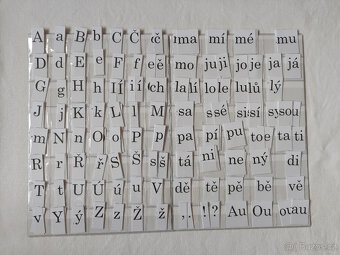 A a B b C Č č ma mí mé mu
D d E e F f e ě mo ju ji jo je ja já
G g H h I Í i í ch la lí lo le lu lů lý
J j k K L l M sa s sé si sí sy sou
m N n O o P p pa pí pu to e ta ti
R r Ř ř S Š s š tá ni ne ný di
T t U Ú ú u V dě tě pě bě vě
v Y ý y Z z Ž ž , . ! ? Au Ou ou au